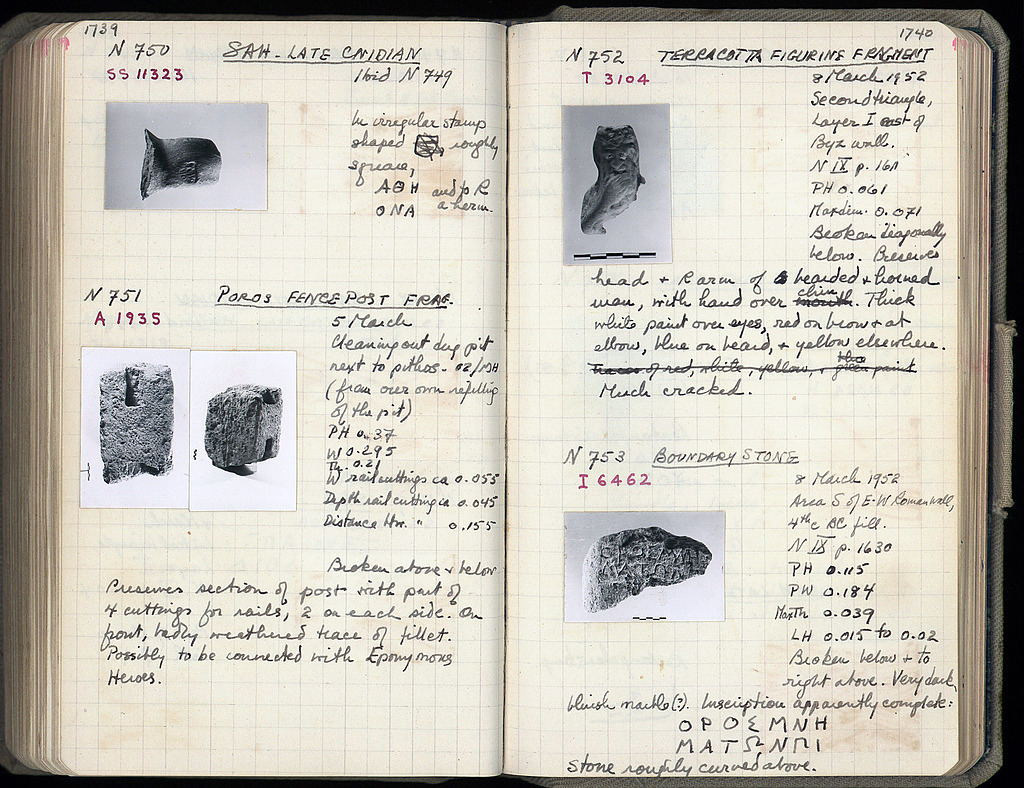 1739
N 750 SAH - LATE CNIDIAN
SS 11323 Ibid N 749
In irregular stamp
shaped roughly
square,
ΑΘΗ and to R
ΟΝΑ a herm.
N 751 POROS FENCE POST FRAG.
A 1935
5 March
Cleaning out dug pit
next to pithos - 02/ΜΗ
(from over own refilling
of the pit)
PH 0.37
W 0.295
Th. 0.21
W rail cuttings ca 0.055
Depth rail cutting ca 0.045
Distance btw. " 0.155
Broken above + below
Preserves section of post with part of
4 cuttings for rails, 2 on each side. On
front, badly weathered trace of fillet.
Possibly to be connected with Eponymous
Heroes.
1740
N 752 TERRACOTTA FIGURINE FRAGMENT
T 3104
8 March 1952
Second triangle,
Layer I east of
Byz wall.
N IX p. 1611
PH 0.061
Max dim. 0.071
Broken diagonally
below. Preserves
head + R arm of bearded + horned
man, with hand over chin mouth. Thick
white paint over eyes, red on brow + at
elbow, blue on beard, + yellow elsewhere.
Traces of red, white, yellow, + blue green paint
Much cracked.
N 753 BOUNDARY STONE
I 6462
8 March 1952
Area S of E-W Roman wall,
4th c BC fill.
N IX p. 1630
PH 0.115
PW 0.184
Max Th 0.039
LH 0.015 to 0.02
Broken below + to
right above. Very dark,
bluish marble (?). Inscription apparently complete:
ΟΡΟΣΜΝΗ
ΜΑΤΩΝΠΙ
Stone roughly curved above.